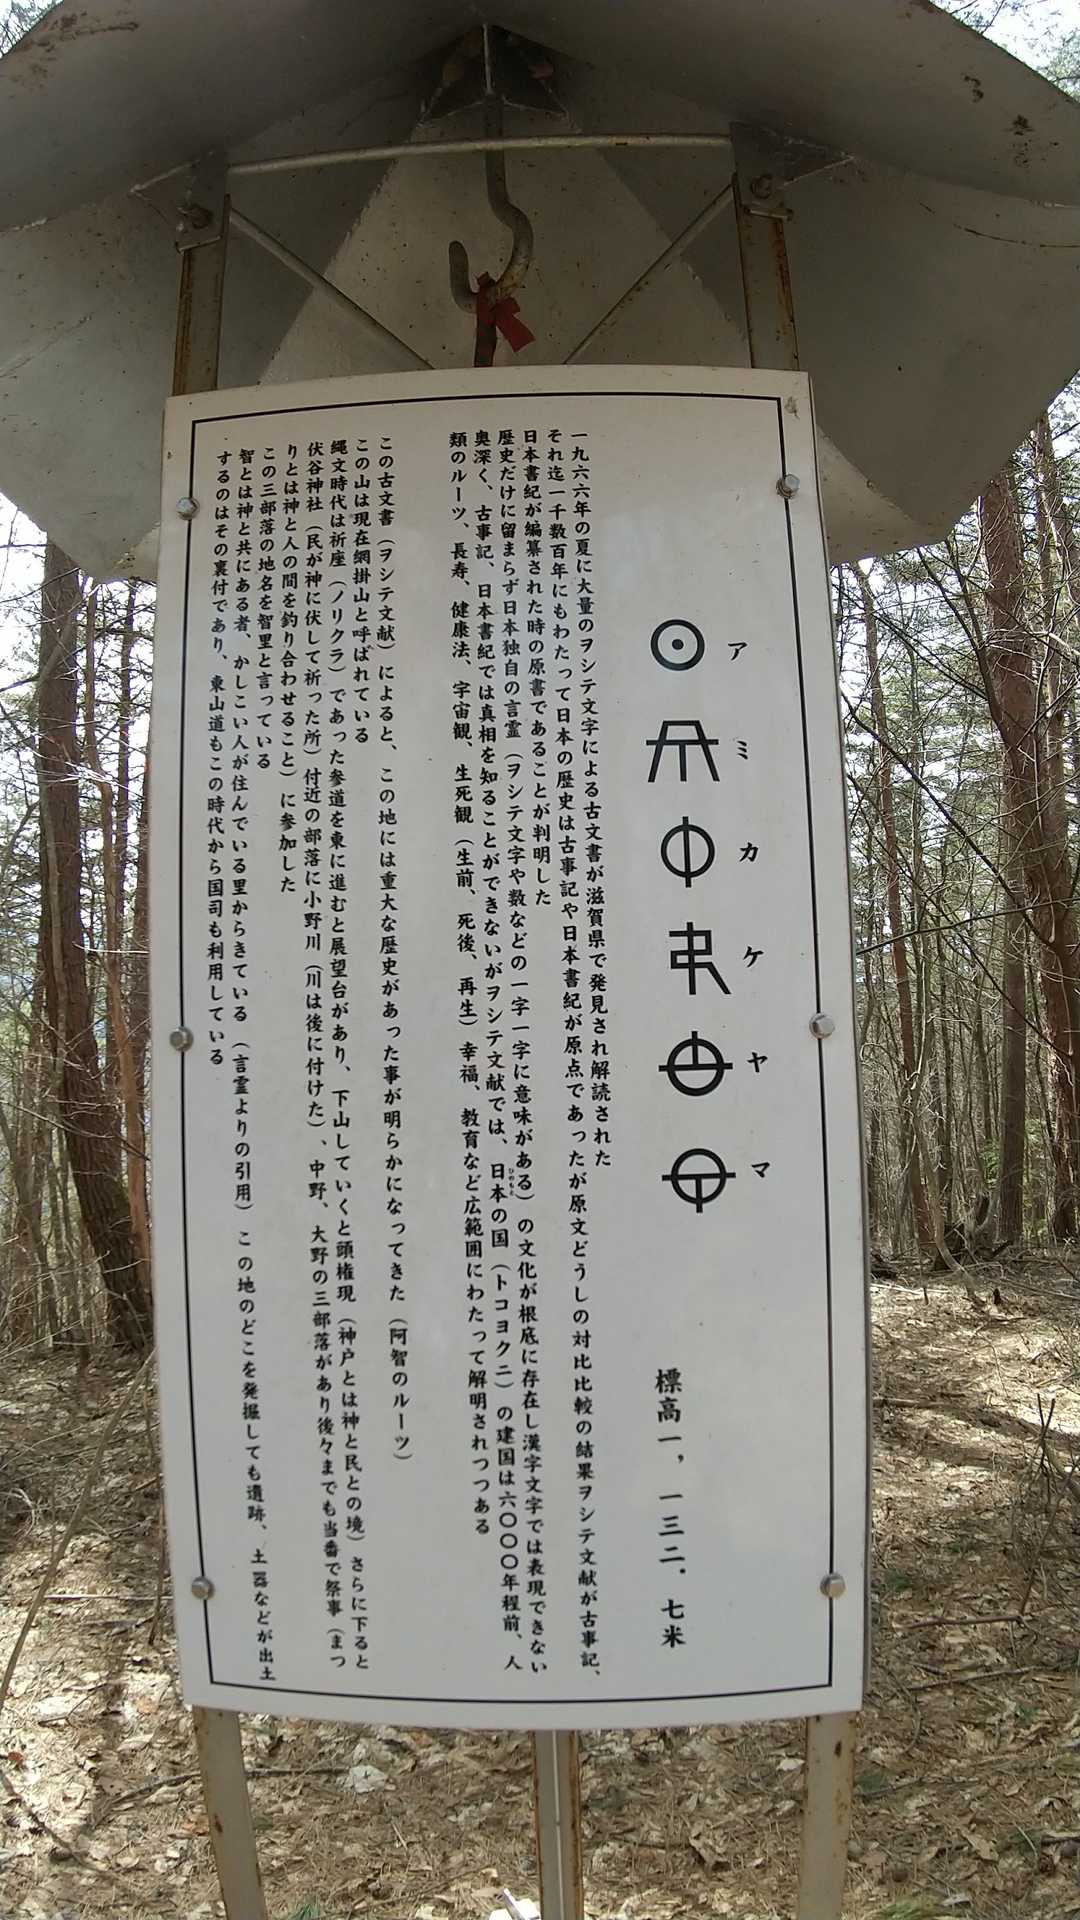 アミカケヤマ
標高一，一三二．七米
一九六六年の夏に大量のヲシテ文字による古文書が滋賀県で発見され解読された
それ迄一千数百年にもわたって日本の歴史は古事記や日本書紀が原点であったが原文どうしの対比比較の結果ヲシテ文献が古事記、
日本書紀が編纂された時の原書であることが判明した
歴史だけに留まらず日本独自の言霊（ヲシテ文字や数などの一字一字に意味がある）の文化が根底に存在し漢字文字では表現できない
奥深く、古事記、日本書紀では真相を知ることができないがヲシテ文献では、日本の国（トコヨクニ）の建国は六〇〇〇年程前、人
ひのもと
類のルーツ、長寿、健康法、宇宙観、生死観（生前、死後、再生）幸福、教育など広範囲にわたって解明されつつある
この古文書（ヲシテ文献）によると、この地には重大な歴史があった事が明らかになってきた（阿智のルーツ）
この山は現在網掛山と呼ばれている
縄文時代は祈座（ノリクラ）であった参道を東に進むと展望台があり、下山していくと頭権現（神戸とは神と民との境）さらに下ると
伏谷神社（民が神に伏して祈った所）付近の部落に小野川（川は後に付けた）、中野、大野の三部落があり後々までも当番で祭事（まつ
りとは神と人の間を釣り合わせること）に参加した
この三部落の地名を智里と言っている
智とは神と共にある者、かしこい人が住んでいる里からきている（言霊よりの引用）この地のどこを発掘しても遺跡、土器などが出土
するのはその裏付であり、東山道もこの時代から国司も利用している